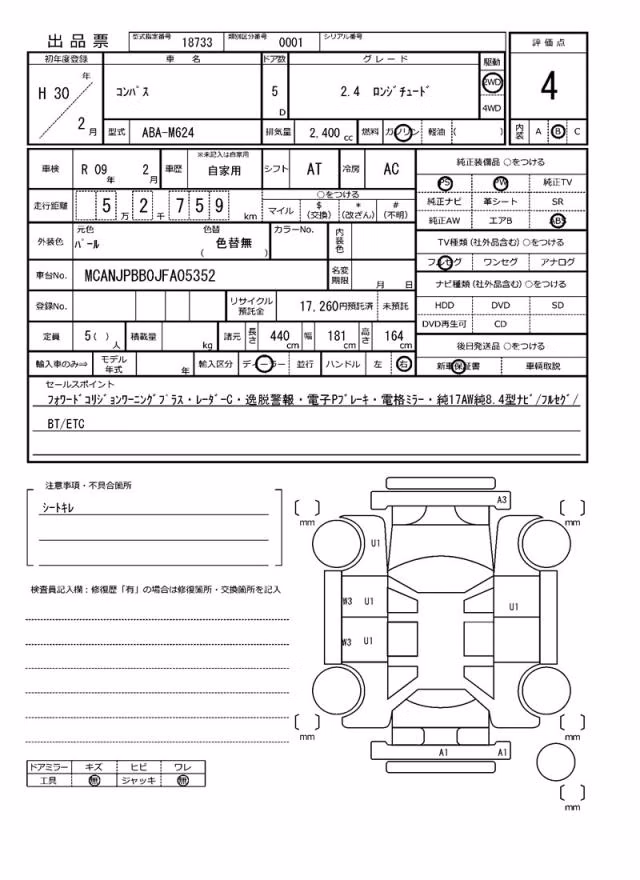 出品票 型式指定番号 18733 類別区分番号 0001 シリアル番号
初年度登録 車名 ドア数 グレード 駆動 評価点
H 30 年 2 月 コンパス 5 D 2.4 ロンジチュード 2WD 4WD 4
型式 ABA-M624 排気量 2,400 cc 燃料 ガソリン 軽油 ( ) 内装 A B C
車検 R 09 年 2 月 車歴 ※未記入は自家用 自家用 シフト AT 冷房 AC
純正装備品 ○をつける
PS PW 純正TV
純正ナビ 革シート SR
純正AW エアB ABS
走行距離 5 万 2 千 7 5 9 km
○をつける
マイル $ (交換) * (改ざん) # (不明)
TV種類 (社外品含む) ○をつける
フルセグ ワンセグ アナログ
外装色 元色 パール 色替 ( 色替無 ) カラーNo. 内装色
車台No. MCANJPBB0JFA05352 名変期限 月 日
ナビ種類 (社外品含む) ○をつける
HDD DVD SD
DVD再生可 CD
登録No. リサイクル預託金 17,260円預託済 未預託
定員 5 ( ) 人 積載量 kg 諸元 長さ 440 cm 幅 181 cm 高さ 164 cm
後日発送品 ○をつける
新車保証書 車輌取説
輸入車のみ⇒ モデル年式 年 輸入区分 ディーラー 並行 ハンドル 左 右
セールスポイント
フォワードコリジョンワーニングプラス・レーダーC・逸脱警報・電子Pブレーキ・電格ミラー・純17AW純8.4型ナビ/フルセグ/
BT/ETC
注意事項・不具合箇所
シートキレ
検査員記入欄：修復歴「有」の場合は修復箇所・交換箇所を記入
ドアミラー キズ ヒビ ワレ
工具 無 ジャッキ 無
A3
mm mm
U1
W3 U1 U1
W3 U1
mm mm
A1 A1
mm